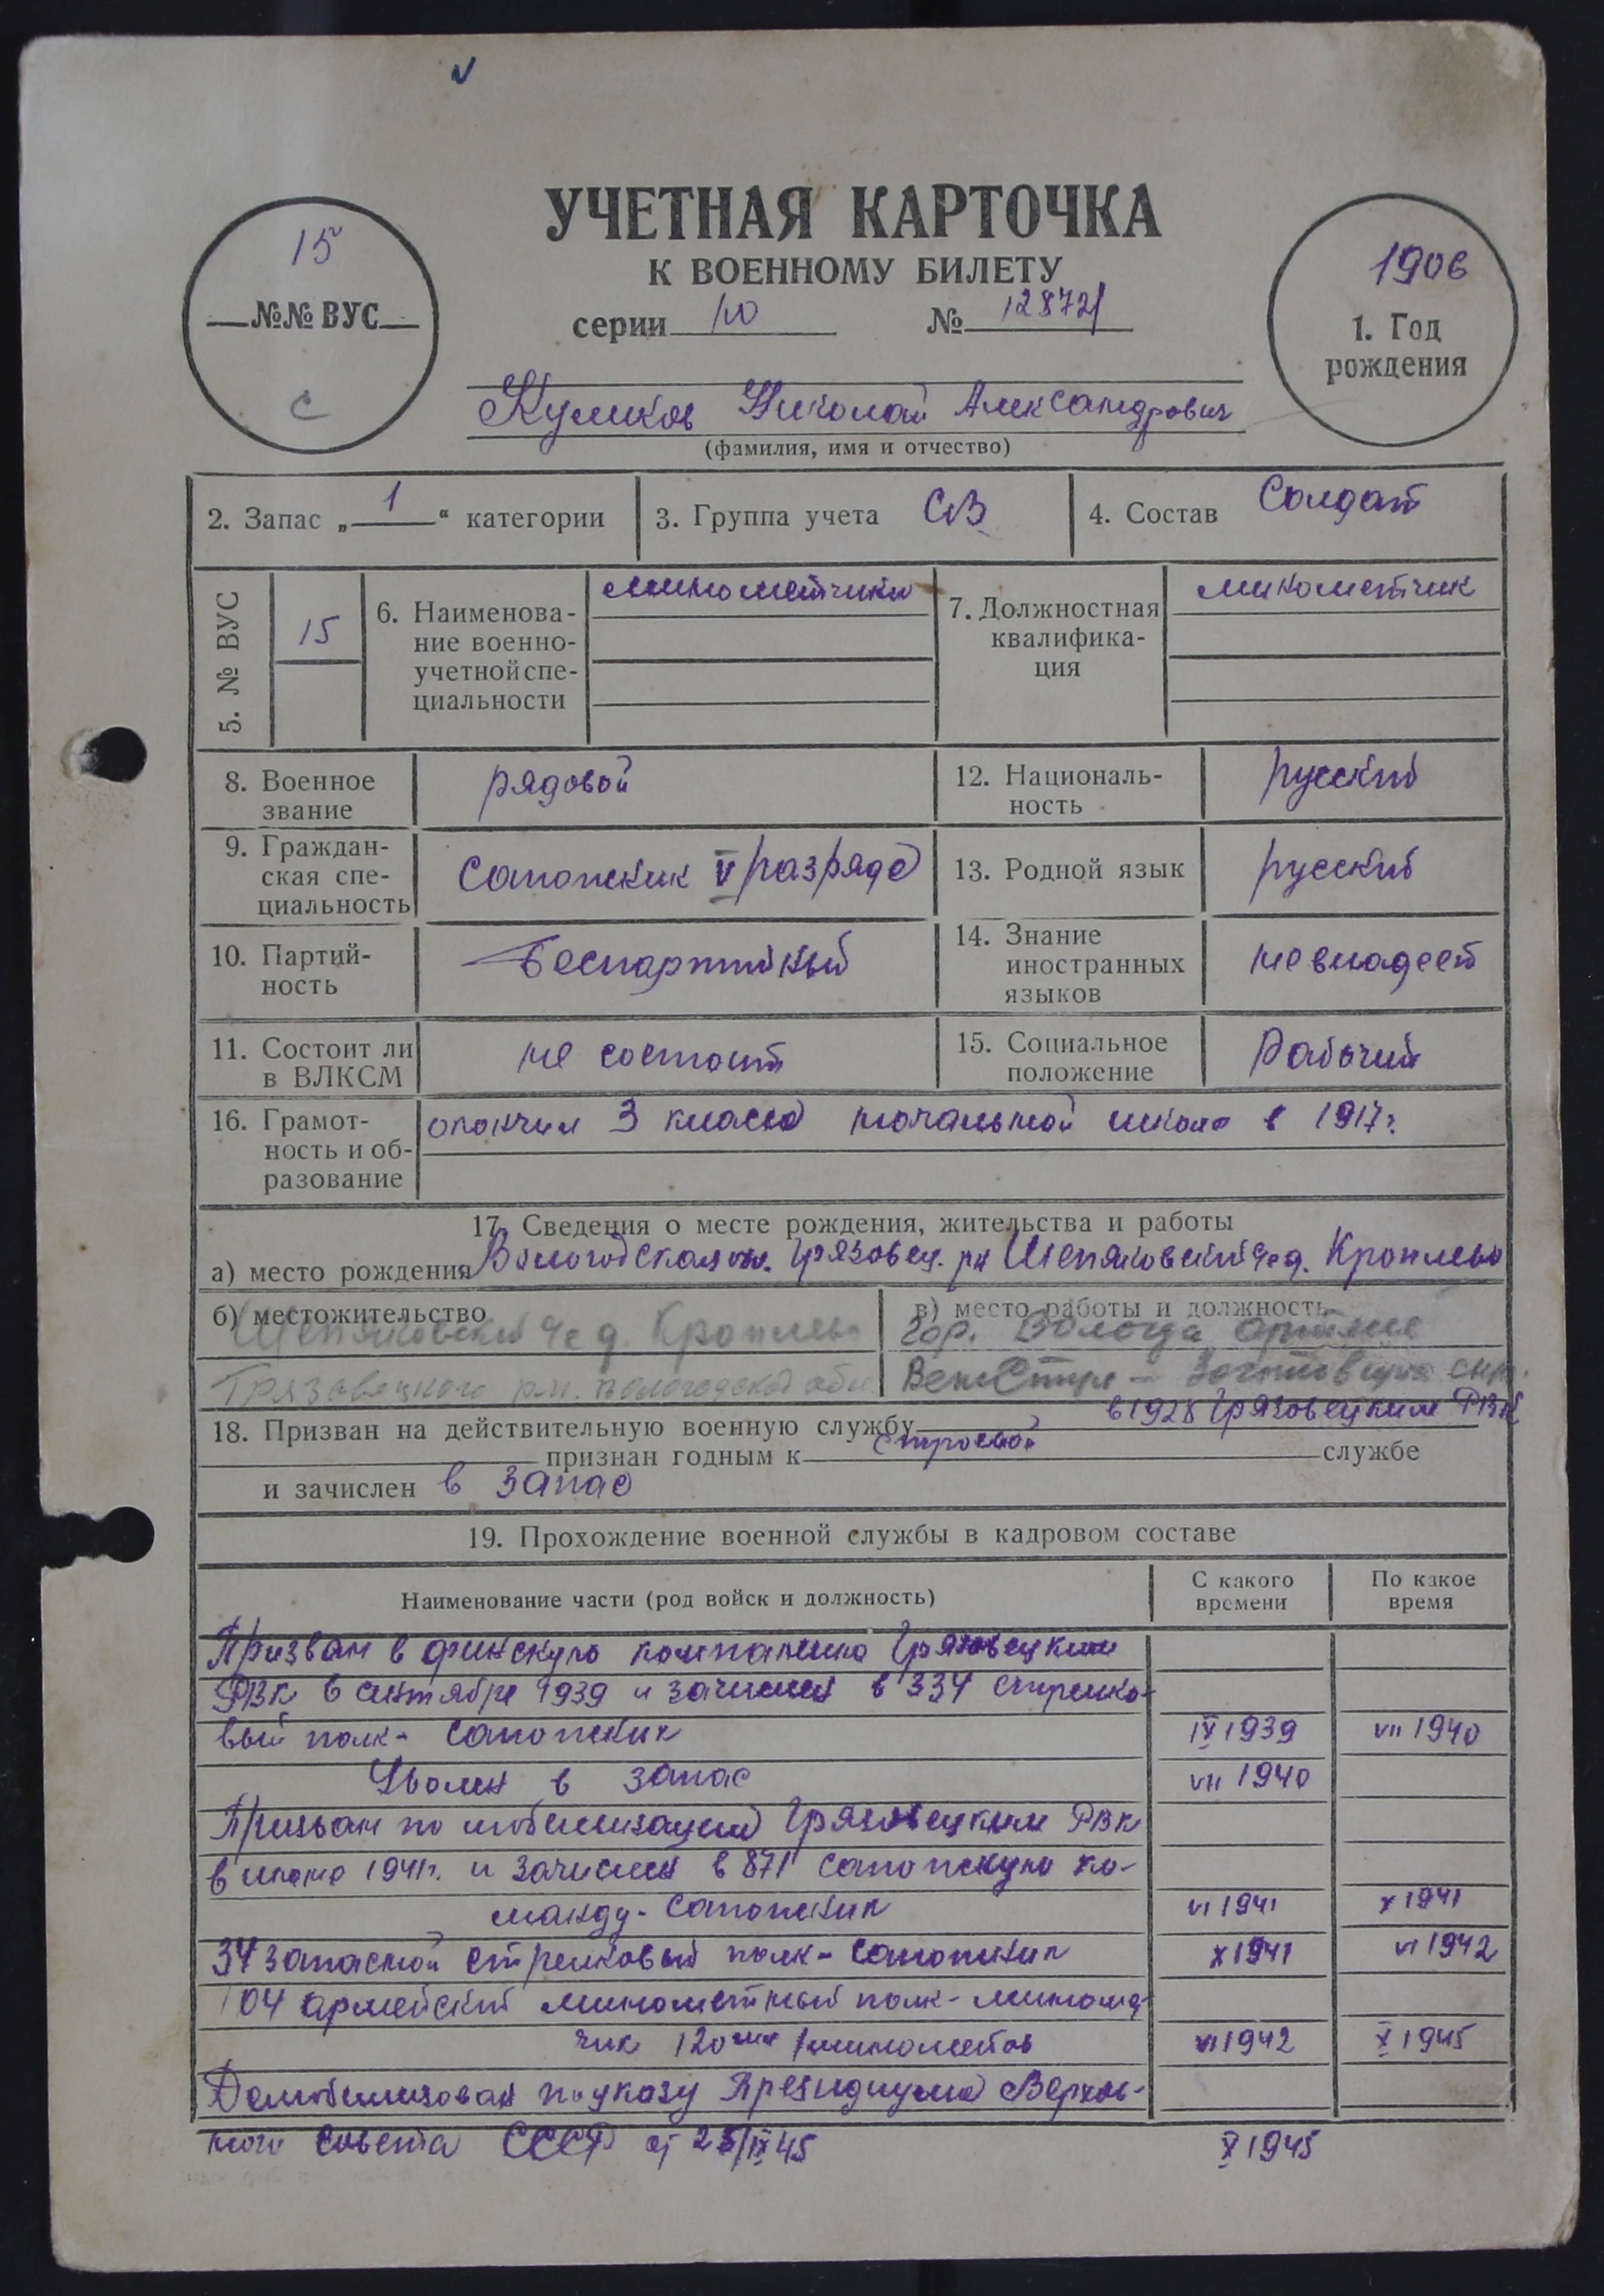 УЧЕТНАЯ КАРТОЧКА
К ВОЕННОМУ БИЛЕТУ
15
№№ ВУС
с
серии Ю № 128721
1906
1. Год
рождения
Куликов Николай Александрович
(фамилия, имя и отчество)
2. Запас „ 1 “ категории
3. Группа учета СВ
4. Состав Солдат
5. № ВУС
15
6. Наименова-
ние военно-
учетной спе-
циальности
минометчики
7. Должностная
квалифика-
ция
минометчик
8. Военное
звание
рядовой
12. Националь-
ность
русский
9. Граждан-
ская спе-
циальность
Сапожник V разряда
13. Родной язык
русский
10. Партий-
ность
Беспартийный
14. Знание
иностранных
языков
не владеет
11. Состоит ли
в ВЛКСМ
не состоит
15. Социальное
положение
Рабочий
16. Грамот-
ность и об-
разование
окончил 3 класса начальной школы в 1917г.
17. Сведения о месте рождения, жительства и работы
а) место рождения Вологодская обл. Грязовец. рн
б) местожительство
Грязовецкого р.н. Вологодской обл
в) место работы и должность
гор. Вологда артель
18. Призван на действительную военную службу в 1928 Грязовецким РВК
признан годным к строевой службе
и зачислен в запас
19. Прохождение военной службы в кадровом составе
Наименование части (род войск и должность)
С какого
времени
По какое
время
Призван в финскую компанию Грязовецким
РВК в сентябре 1939 и зачислен в 334 стрелко-
вый полк - сапожник IX 1939 VII 1940
Уволен в запас VII 1940
Призван по мобилизации Грязовецким РВК
в июне 1941г. и зачислен в 871 сапожную ко-
манду - сапожник VI 1941 X 1941
34 запасной стрелковый полк - сапожник X 1941 VI 1942
104 армейский минометный полк - миномет-
чик 120 мм минометов VI 1942 X 1945
Демобилизован по указу Президиума Верхов-
ного Совета СССР от 25/IX 45 X 1945